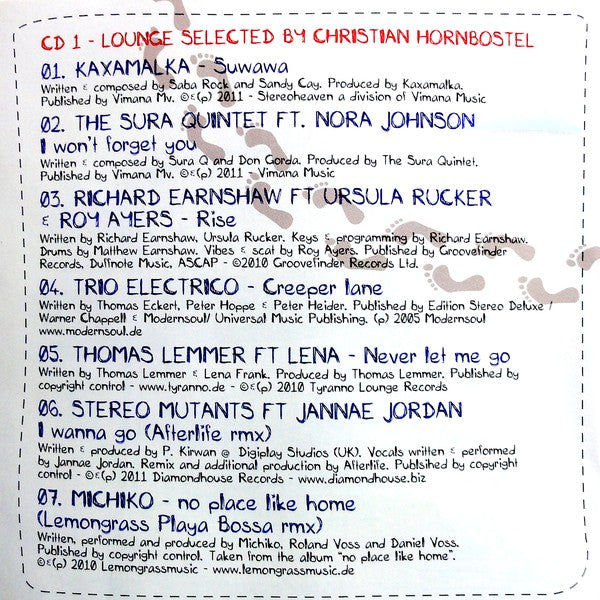 CD 1 - LOUNGE SELECTED BY CHRISTIAN HORNBOSTEL
01. KAXAMALKA - Suwawa
Written & composed by Saba Rock and Sandy Cay. Produced by Kaxamalka.
Published by Vimana Mv. ©&(p) 2011 - Stereoheaven a division of Vimana Music
02. THE SURA QUINTET FT. NORA JOHNSON
I won't forget you
Written & composed by Sura Q and Don Gorda. Produced by The Sura Quintet.
Published by Vimana Mv. ©&(p) 2011 - Vimana Music
03. RICHARD EARNSHAW FT URSULA RUCKER
& ROY AYERS - Rise
Written by Richard Earnshaw, Ursula Rucker. Keys & programming by Richard Earnshaw.
Drums by Matthew Earnshaw. Vibes & scat by Roy Ayers. Published by Groovefinder
Records, Duffnote Music, ASCAP - ©2010 Groovefinder Records Ltd.
04. TRIO ELECTRICO - Creeper lane
Written by Thomas Eckert, Peter Hoppe & Peter Heider. Published by Edition Stereo Deluxe /
Warner Chappell & Modernsoul/ Universal Music Publishing. (p) 2005 Modernsoul
www.modernsoul.de
05. THOMAS LEMMER FT LENA - Never let me go
Written by Thomas Lemmer & Lena Frank. Produced by Thomas Lemmer. Published by
copyright control - www.tyranno.de - ©&(p) 2010 Tyranno Lounge Records
06. STEREO MUTANTS FT JANNAE JORDAN
I wanna go (Afterlife rmx)
Written & produced by P. Kirwan @ Digiplay Studios (UK). Vocals written & performed
by Jannae Jordan. Remix and additional production by Afterlife. Publsihed by cobyright
control - ©&(p) 2011 Diamondhouse Records - www.diamondhouse.biz
07. MICHIKO - no place like home
(Lemongrass Playa Bossa rmx)
Written, performed and produced by Michiko, Roland Voss and Daniel Voss.
Published by copyright control. Taken from the album "no place like home".
©&(p) 2010 Lemongrassmusic - www.lemongrassmusic.de